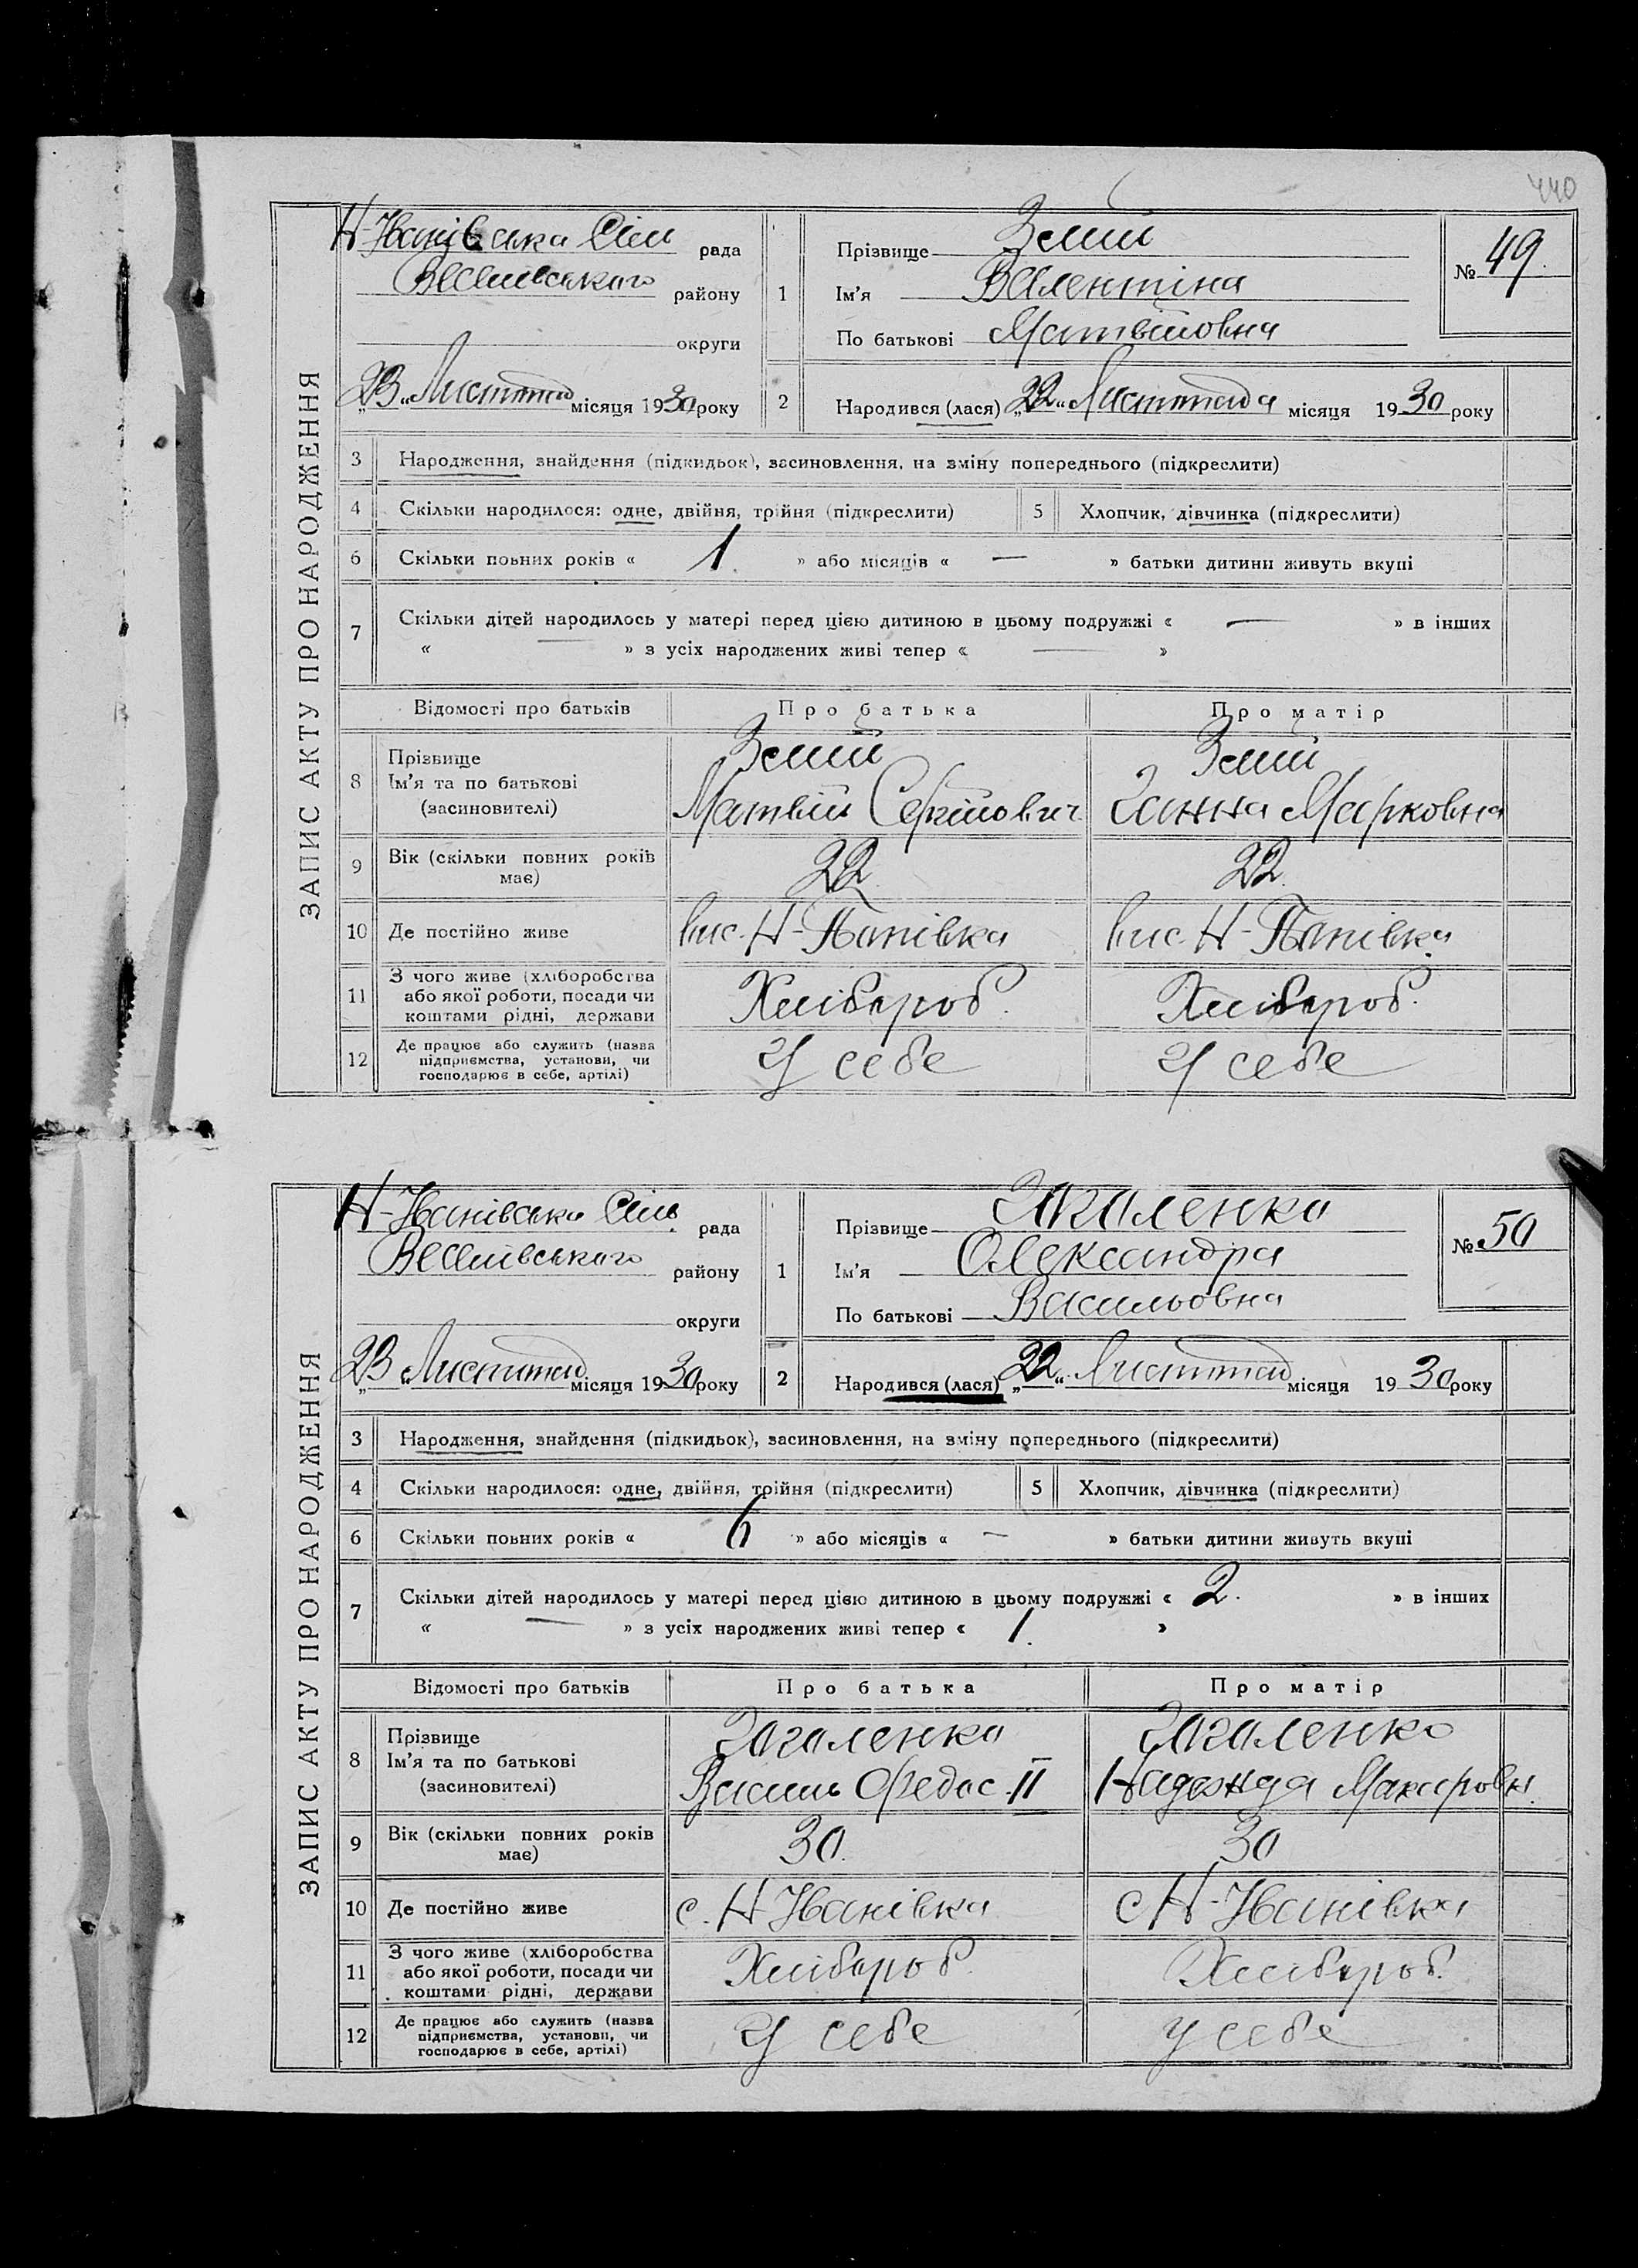 440
ЗАПИС АКТУ ПРО НАРОДЖЕННЯ
Н-Іванівська Сіль рада
Веселівського району
округи
„23“ Листопад місяця 1930 року
1
Прізвище Змій
Ім'я Валентіна
По батькові Матвійовна
№ 49.
2 Народився (лася) „22“ Листопада місяця 1930 року
3 Народження, знайдення (підкидьок), засиновлення, на зміну попереднього (підкреслити)
4 Скільки народилося: одне, двійня, трійня (підкреслити) 5 Хлопчик, дівчинка (підкреслити)
6 Скільки повних років « 1 » або місяців « — » батьки дитини живуть вкупі
7 Скільки дітей народилось у матері перед цією дитиною в цьому подружжі « — » в інших
« — » з усіх народжених живі тепер « — »
Відомості про батьків Про батька Про матір
8 Прізвище Змій Змій
Ім'я та по батькові Матвій Сергійович Ганна Марковна
(засновителі)
9 Вік (скільки повних років має) 22 22
10 Де постійно живе вис. Н- вис. Н-
11 З чого живе (хліборобства або якої роботи, посади чи коштами рідні, держави Хлібороб. Хлібороб.
12 Де працює або служить (назва підприємства, установи, чи господарює в себе, артілі) У себе У себе
ЗАПИС АКТУ ПРО НАРОДЖЕННЯ
Н-Іванівська Сіль рада
Веселівського району
округи
„23“ Листопад місяця 1930 року
1
Прізвище Загаленко
Ім'я Олександра
По батькові Васильовна
№ 50
2 Народився (лася) „22“ Листопад місяця 1930 року
3 Народження, знайдення (підкидьок), засиновлення, на зміну попереднього (підкреслити)
4 Скільки народилося: одне, двійня, трійня (підкреслити) 5 Хлопчик, дівчинка (підкреслити)
6 Скільки повних років « 6 » або місяців « — » батьки дитини живуть вкупі
7 Скільки дітей народилось у матері перед цією дитиною в цьому подружжі « 2. » в інших
« — » з усіх народжених живі тепер « 1. »
Відомості про батьків Про батька Про матір
8 Прізвище Загаленко Загаленко
Ім'я та по батькові Василь Федос. II Надежда Макаровн.
(засиновителі)
9 Вік (скільки повних років має) 30. 30
10 Де постійно живе с. Н Іванівка с Н-Іванівка
11 З чого живе (хліборобства або якої роботи, посади чи коштами рідні, держави Хлібороб. Хлібороб.
12 Де працює або служить (назва підприємства, установи, чи господарює в себе, артілі) У себе У себе